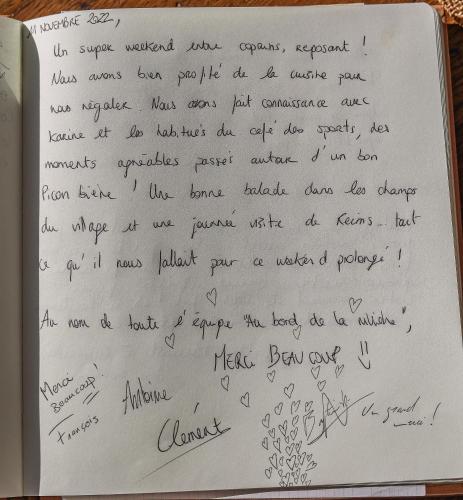 11 NOVEMBRE 2022,
Un super weekend entre copains, reposant !
Nous avons bien profité de la cuisine pour
nous régaler. Nous avons fait connaissance avec
Karine et les habitués du café des sports, des
moments agréables passés autour d'un bon
Picon bière ! Une bonne balade dans les champs
du village et une journée visite de Reims... tout
ce qu'il nous fallait pour ce weekend prolongé !
Au nom de toute l'équipe "Au bord de la",
MERCI BEAUCOUP !!
Merci
Beaucoup !
François
Antoine
Clément
Un grand
merci !